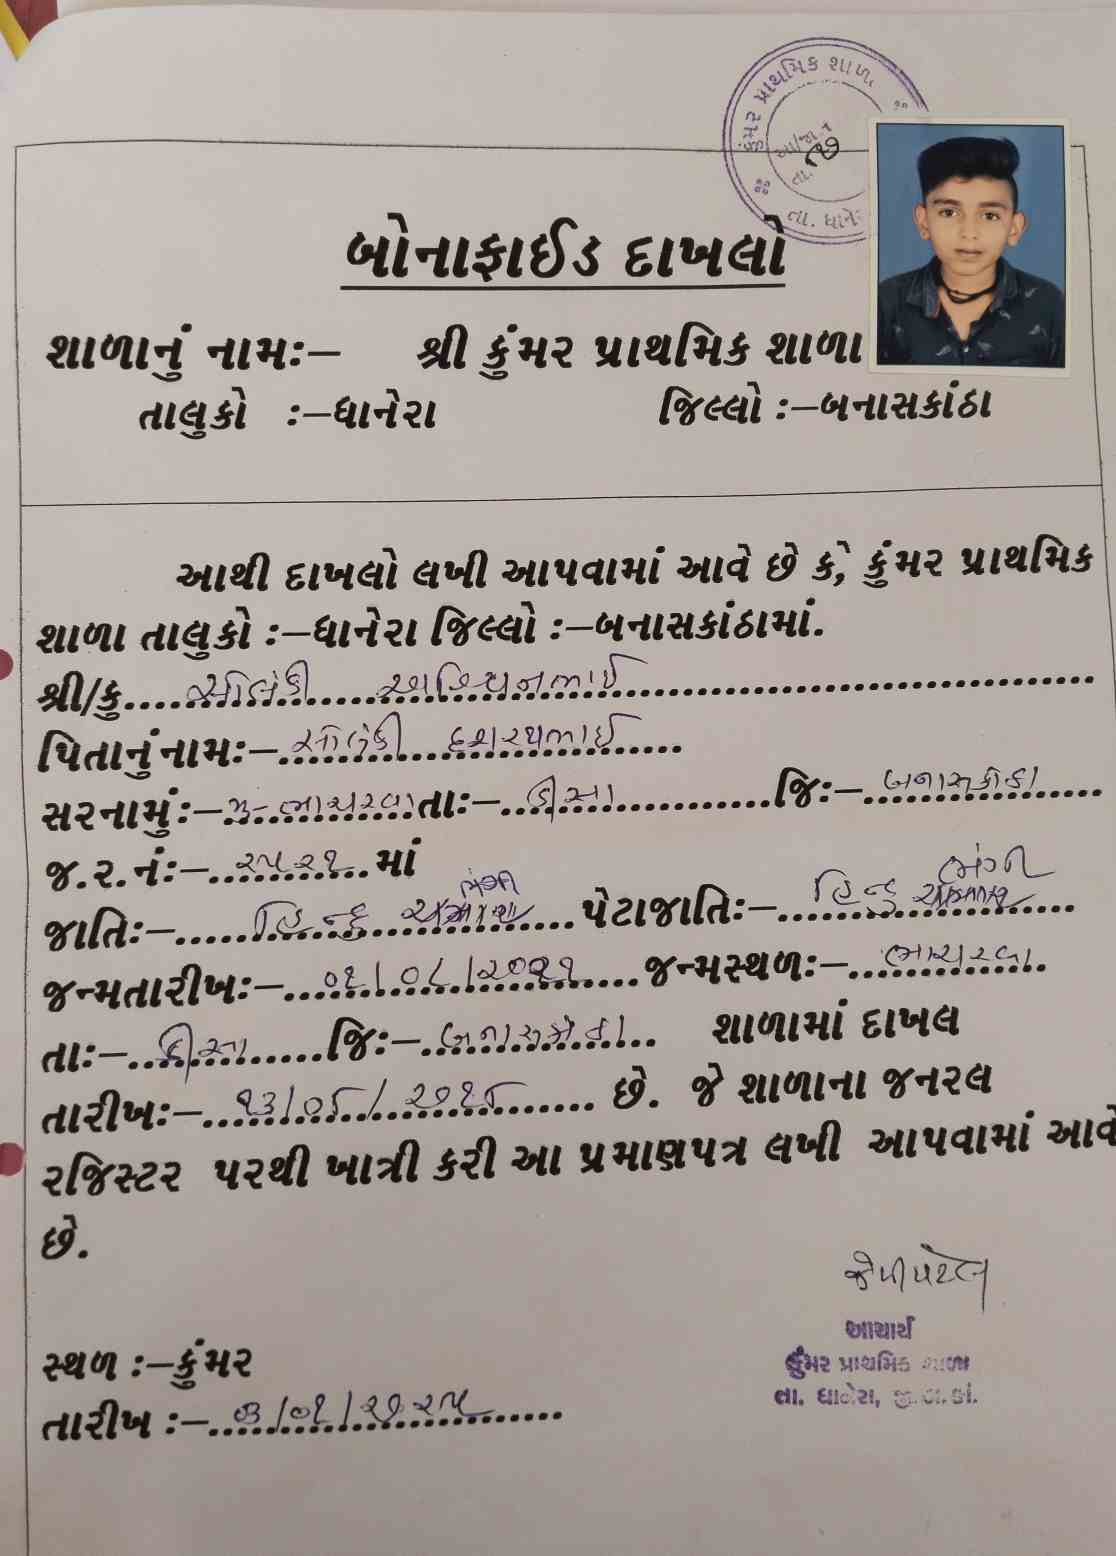 કુંમર પ્રાથમિક શાળા
તા. ધાને
બોનાફાઈડ દાખલો
શાળાનું નામઃ– શ્રી કુંમર પ્રાથમિક શાળા
તાલુકો :–ધાનેરા જિલ્લો :–બનાસકાંઠા
આથી દાખલો લખી આપવામાં આવે છે કે, કુંમર પ્રાથમિક
શાળા તાલુકો :–ધાનેરા જિલ્લો :–બનાસકાંઠામાં.
શ્રી/કુ. સોલંકી
પિતાનુંનામઃ– સોલંકી દશરથભાઈ
સરનામુંઃ– મુ-ભાચરવા તાઃ– ડીસા જિઃ– બનાસકાંઠા
જ.ર.નંઃ– ૨૫૨૧ માં
જાતિઃ– હિન્દુ ભંગી પેટાજાતિઃ– હિન્દુ ભંગી
જન્મતારીખઃ– ૦૧/૦૮/૨૦૧૧ જન્મસ્થળઃ– ભાચરવા
તાઃ– ડીસા જિઃ– બનાસકાંઠા શાળામાં દાખલ
તારીખઃ– ૧૩/૦૬/૨૦૧૬ છે. જે શાળાના જનરલ
રજિસ્ટર પરથી ખાત્રી કરી આ પ્રમાણપત્ર લખી આપવામાં આવે
છે.
આચાર્ય
કુંમર પ્રાથમિક શાળા
તા. ધાનેરા, જી.બ.કાં.
સ્થળ :–કુંમર
તારીખ :– ૩/૦૧/૨૦૨૫